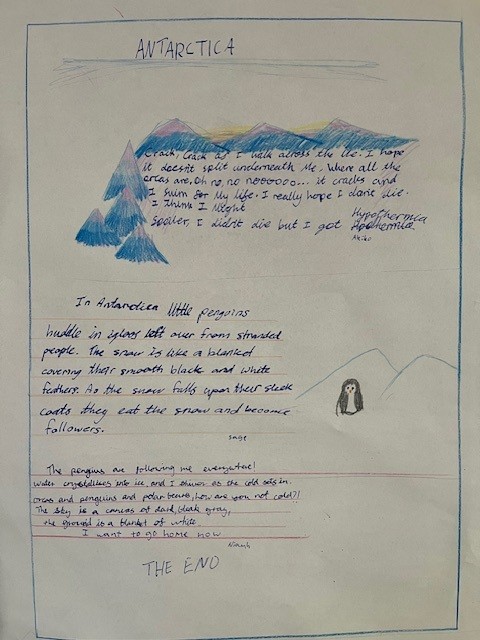 ANTARCTICA
Crack, Crack as I walk across the ice. I hope
it doesn't split underneath me. Where all the
orcas are. Oh no, no nooooo... it cracks and
I swim for my life. I really hope I don't die.
I think I might
Spoiler, I didn't die but I got Hypothermia
Akiko
In Antarctica little penguins
huddle in igloos left over from stranded
people. The snow is like a blanket
covering their smooth black and white
feathers. As the snow falls upon their sleek
coats they eat the snow and become
followers.
sage
The penguins are following me everywhere!
water crystallises into ice, and I shiver as the cold sets in.
orcas and penguins and polar bears, how are you not cold?!
The sky is a canvas of dark, bleak gray,
the ground is a blanket of white.
I want to go home now
Niamh
THE END